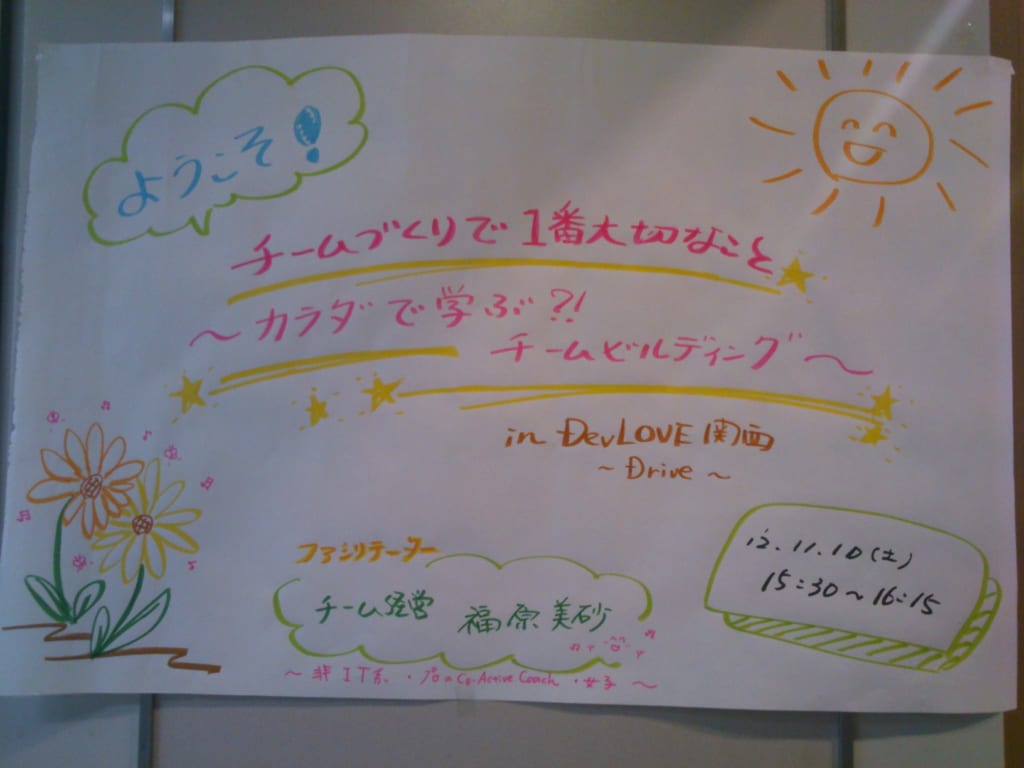 ようこそ!
チームづくりで1番大切なこと
～カラダで学ぶ?!
チームビルディング～
in DevLOVE関西
～Drive～
ファシリテーター
チーム経営 福原美砂
～非IT系・プロのCo-Active Coach・女子～
12.11.10(土)
15:30～16:15